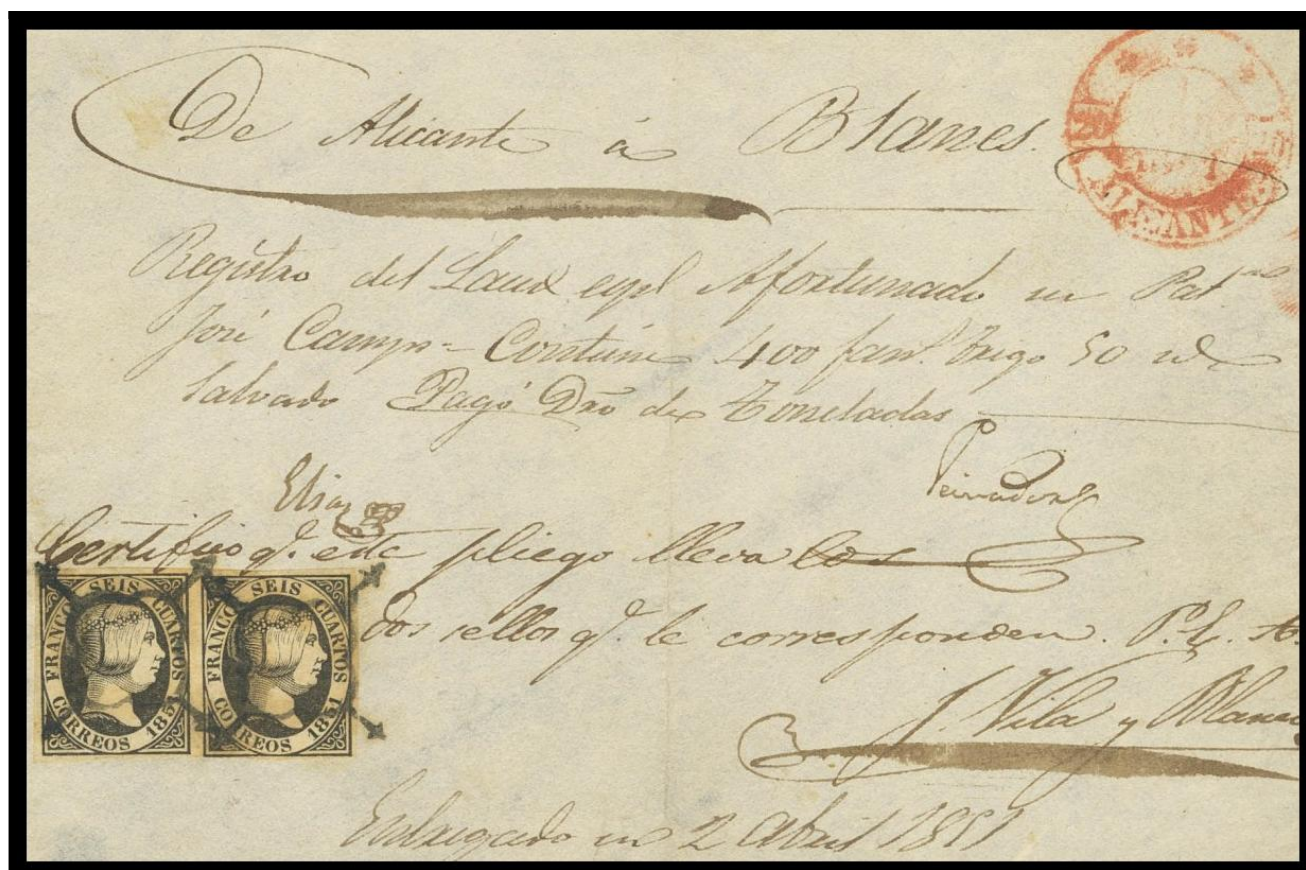 De Alicante á Blanes.
ALICANTE
Registro del Laud espl Afortunado su Patn
José Camps = Contiene 400 fans. trigo 50 id
Salvado Pagó Dro de Toneladas
Elias
Certifico q.e este pliego lleva los
dos sellos q.e le corresponden. P.E. A.
J. Vila y Blanco
FRANCO SEIS CUARTOS
CORREOS 1851
FRANCO SEIS CUARTOS
CORREOS 1851
Entregado en 2 Abril 1851